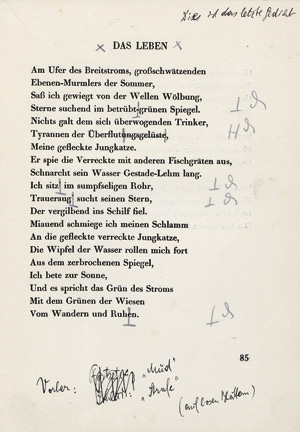 Dies ist das letzte Gedicht
DAS LEBEN
Am Ufer des Breitstroms, großschwätzenden
Ebenen-Murmlers der Sommer,
Saß ich gewiegt von der Wellen Wölbung,
Sterne suchend im betrübt-grünen Spiegel.
Nichts galt dem sich überwogenden Trinker,
Tyrannen der Überflutungsgelüste,
Meine gefleckte Jungkatze.
Er spie die Verreckte mit anderen Fischgräten aus,
Schnarcht sein Wasser Gestade-Lehm lang.
Ich sitz im sumpfseligen Rohr,
Traueraug sucht seinen Stern,
Der vergilbend ins Schilf fiel.
Miauend schmiege ich meinen Schlamm
An die gefleckte verreckte Jungkatze,
Die Wipfel der Wasser rollen mich fort
Aus dem zerbrochenen Spiegel,
Ich bete zur Sonne,
Und es spricht das Grün des Stroms
Mit dem Grünen der Wiesen
Vom Wandern und Ruhen.
85
Vorher: "Müd"
"Strafe"
(auf losen Blättern)